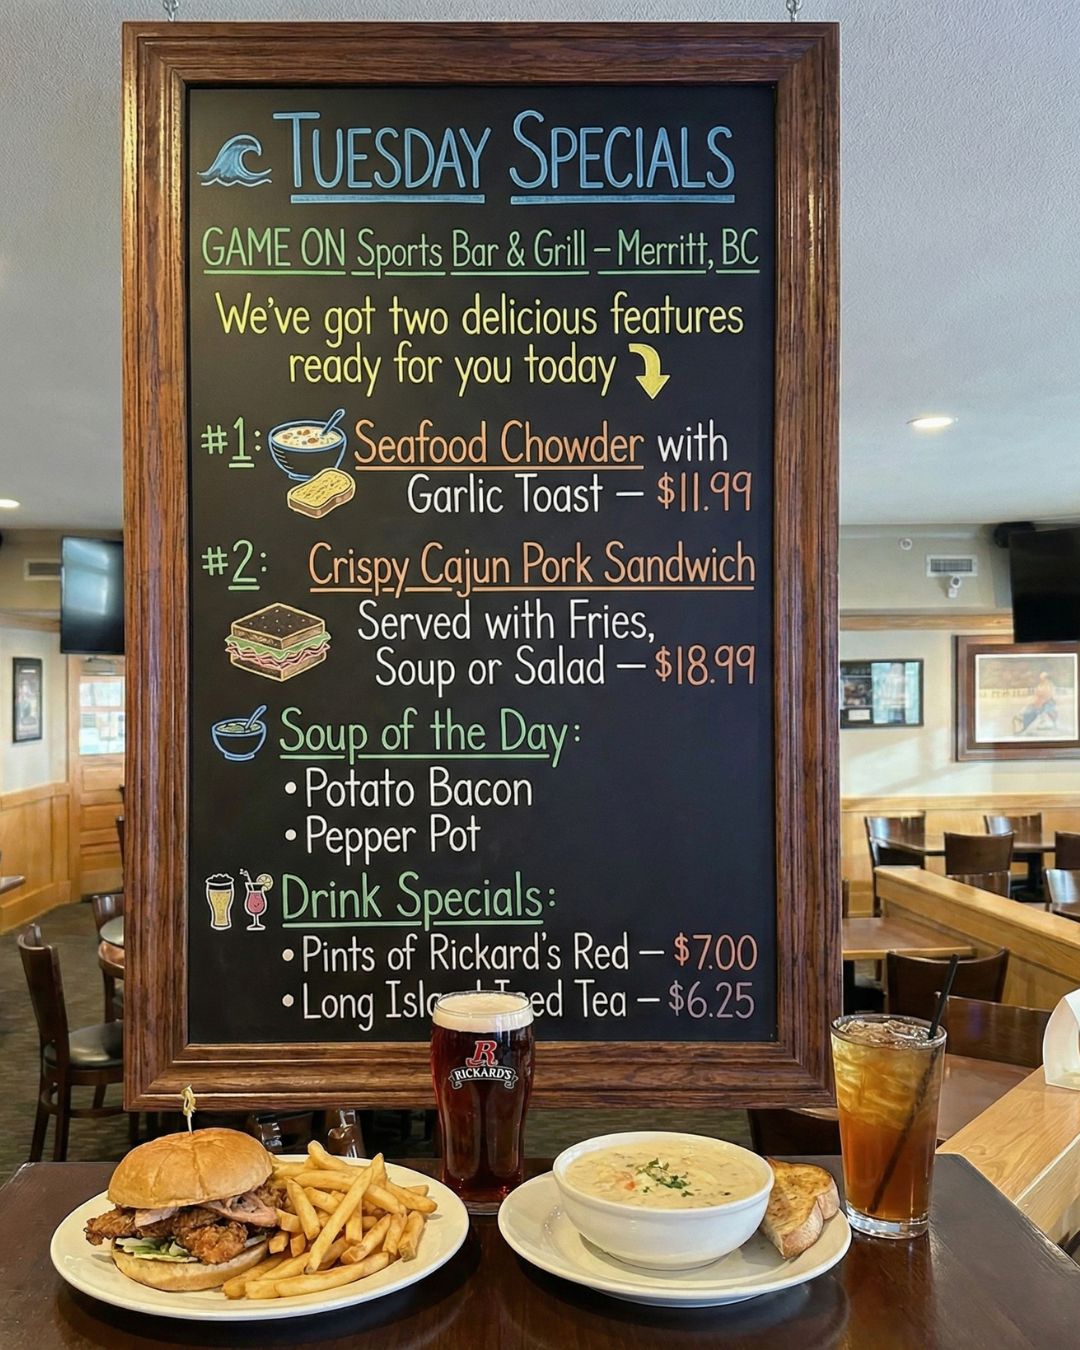 TUESDAY SPECIALS
GAME ON Sports Bar & Grill – Merritt, BC
We've got two delicious features
ready for you today
#1: Seafood Chowder with
Garlic Toast – $11.99
#2: Crispy Cajun Pork Sandwich
Served with Fries,
Soup or Salad – $18.99
Soup of the Day:
• Potato Bacon
• Pepper Pot
Drink Specials:
• Pints of Rickard's Red – $7.00
• Long Island Iced Tea – $6.25
R
RICKARD'S